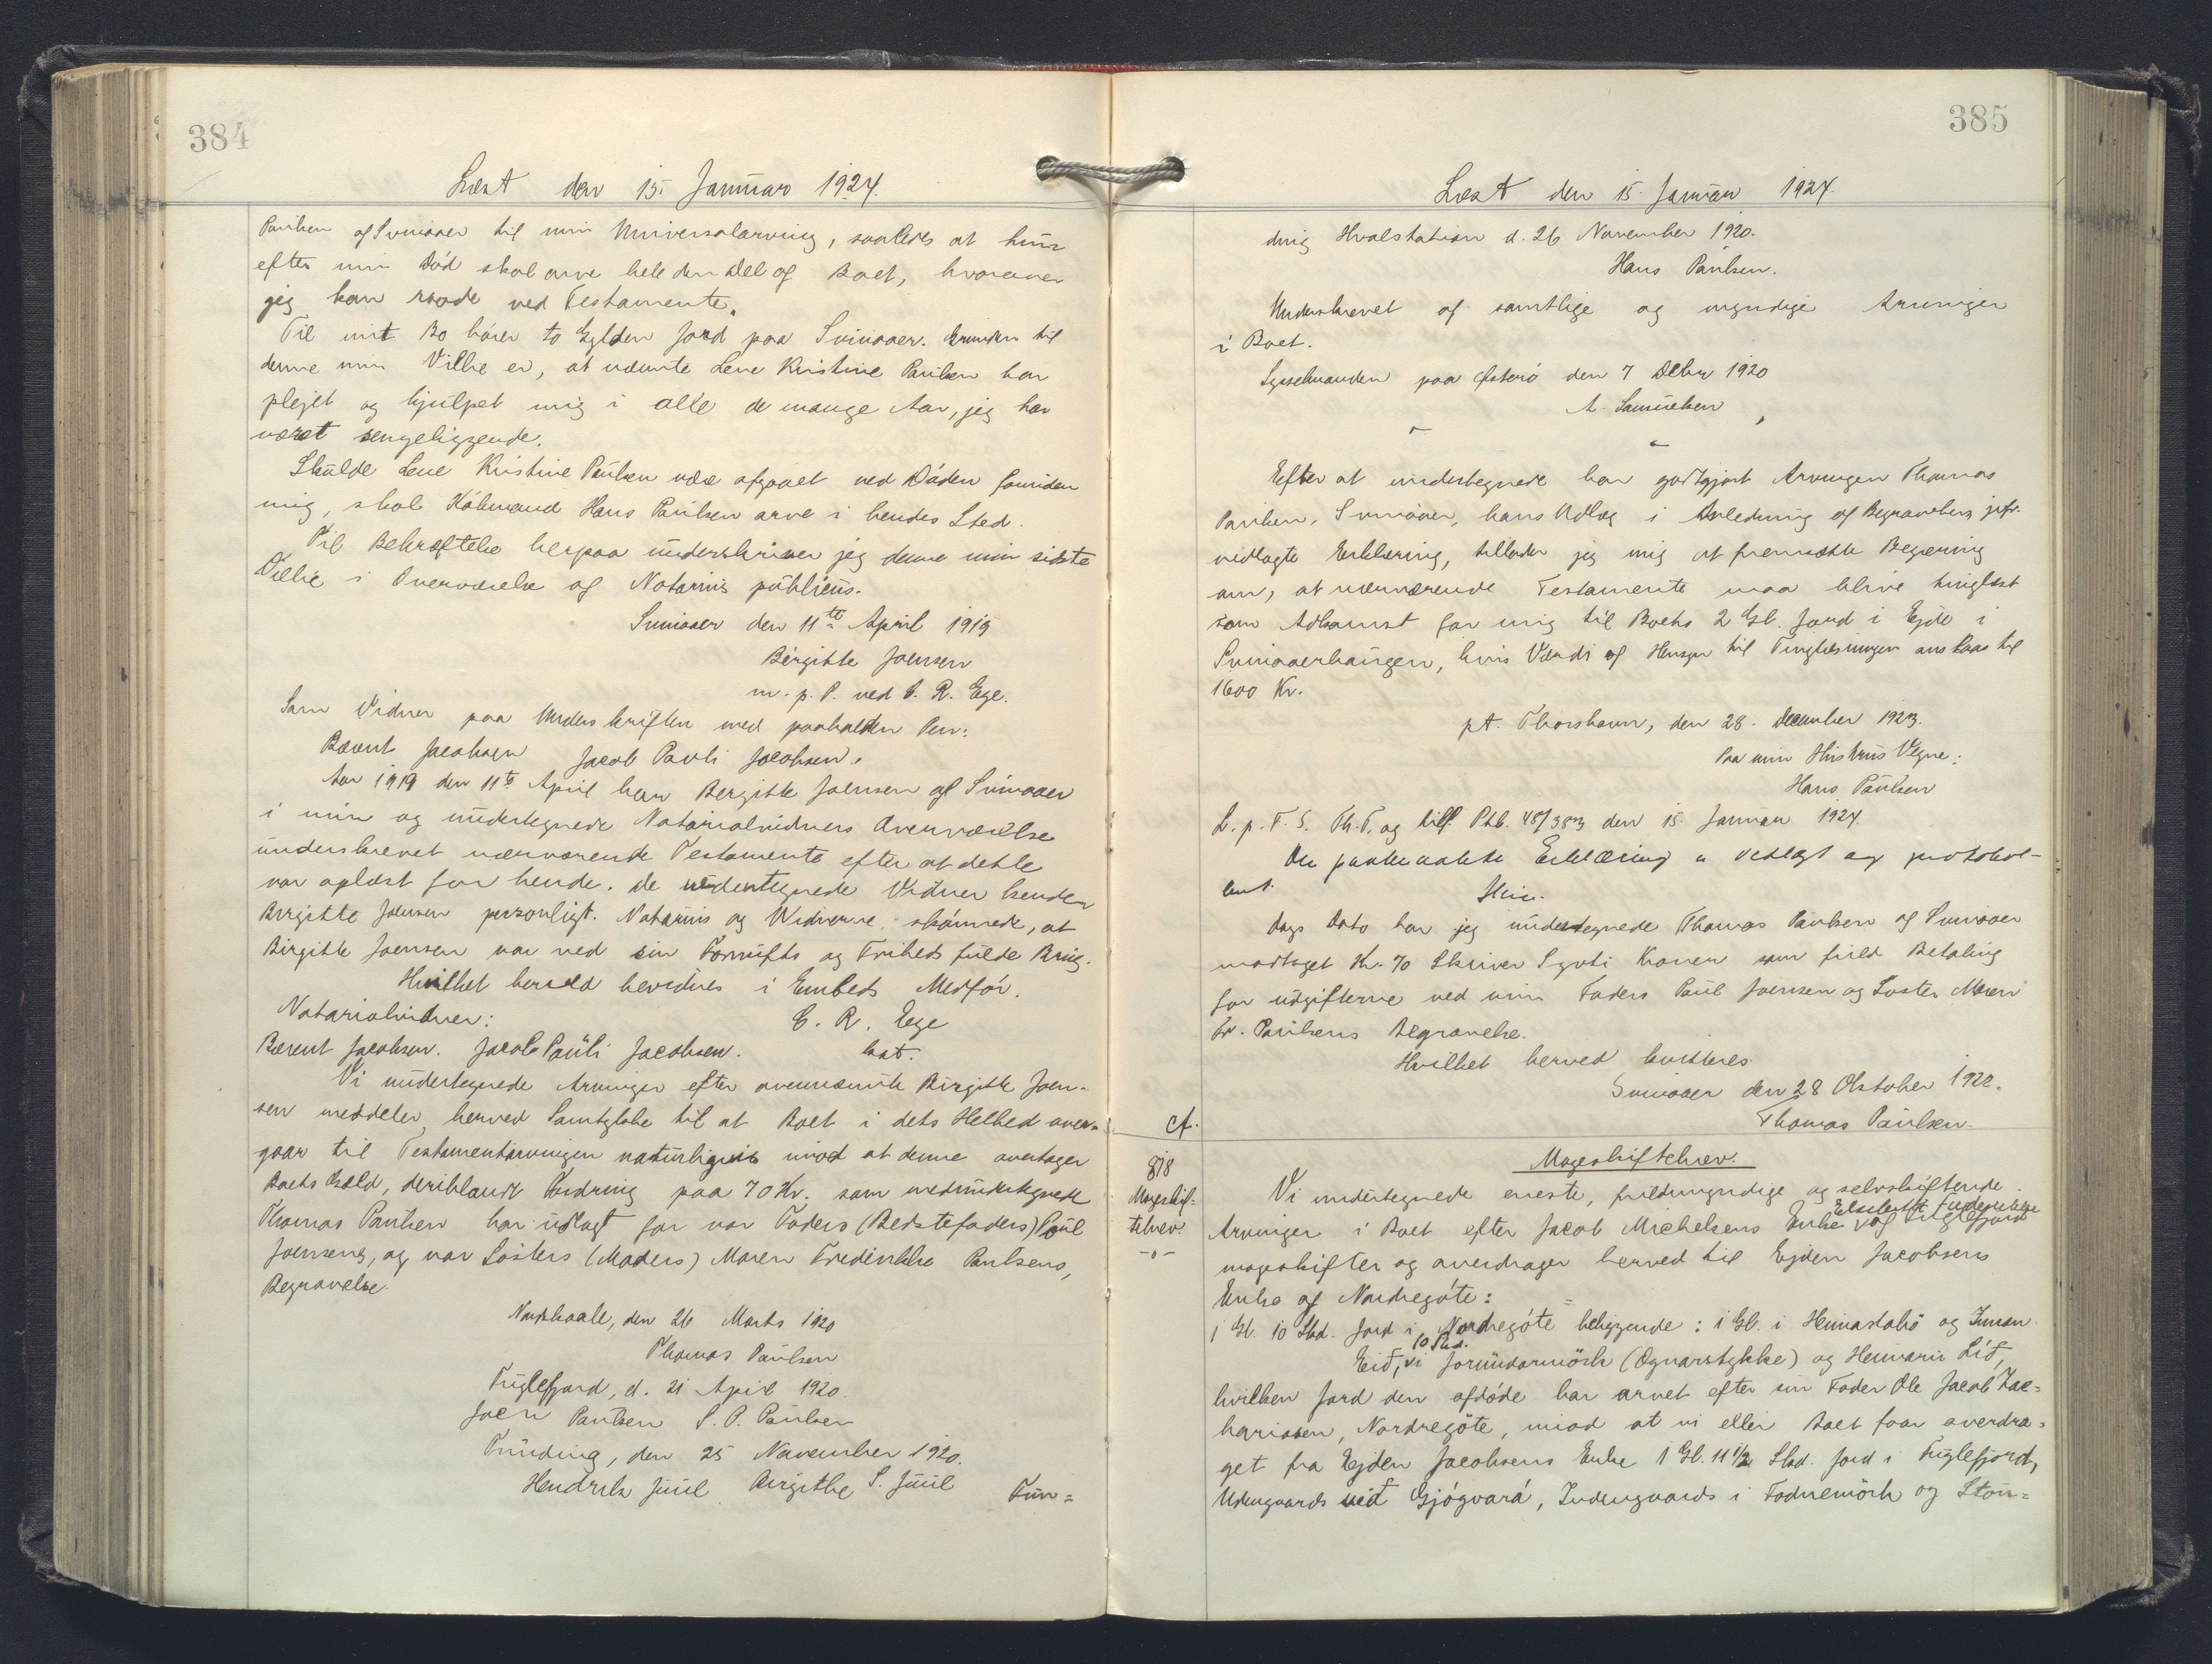 384
Læst den 15. Januar 1924.
Paulsen af Svinaaer til min Universalarving, saaledes at hun
efter min Død skal arve hele den Del af Boet, hvorover
jeg kan raade ved Testamente.
Til mit Bo hører to Gylden Jord paa Svinaaer. Grunden til
denne min Villie er, at nævnte Lene Kristine Paulsen har
plejet og hjulpet mig i alle de mange Aar, jeg har
været sengeliggende.
Skulde Lene Kristine Paulsen være afgaaet ved Døden forinden
mig, skal Købmand Hans Paulsen arve i hendes Sted.
Til Bekræftelse herpaa underskriver jeg denne min sidste
Villie i Overværelse af Notarius publicus.
Svinaaer den 11te April 1919
Birgitte Joensen
m. p. P. ved C. R. Ege.
Som Vidner paa Underskriften med paaholden Pen:
Bærent Jacobsen Jacob Pauli Jacobsen.
Aar 1919 den 11te April har Birgitte Joensen af Svinaaer
i min og undertegnede Notarialvidners Overværelse
underskrevet nærværende Testamente efter at dette
var oplæst for hende. De undertegnede Vidner kender
Birgitte Joensen personligt. Notarius og Vidnerne skønnede, at
Birgitte Joensen var ved sin Fornufts og Friheds fulde Brug.
Hvilket herved bevidnes i Embeds Medfør.
Notarialvidner: C. R. Ege
Bærent Jacobsen. Jacob Pauli Jacobsen. kst.
Vi undertegnede Arvinger efter ovennævnte Birgitte Joen-
sen meddeler herved Samtykke til at Boet i dets Helhed over-
gaar til Testamentarvingen naturligvis imod at denne overtager
Boets Gæld, deriblandt Fordring paa 70 Kr. som medundertegnede
Thomas Paulsen har udlagt for vor Faders (Bedstefaders) Poul
Joensens, og vor Søsters (Moders) Maren Fredrikke Paulsens,
Begravelse.
Nordskaale, den 26 Marts 1920
Thomas Paulsen
Fuglefjord, d. 21 April 1920.
Joen Paulsen S. P. Paulsen
Funding, den 25 November 1920.
Hendrik Juul Birgithe S. Juul Fun=
385
Læst den 15. Januar 1924.
ding Hvalstation d. 26 November 1920.
Hans Paulsen.
Underskrevet af samtlige og myndige Arvinger
i Boet.
Sysselmanden paa Østerø den 7 Debr 1920
A. Samuelsen
Efter at undertegnede har godtgjort Arvingen Thomas
Paulsen, Svinaaer, hans Udlæg i Anledning af Begravelsen jvfr.
vedlagte Erklæring, tillader jeg mig at fremsætte Begæring
om, at nærværende Testamente maa blive tinglæst
som Adkomst for mig til Boets 2 Gl. Jord i Ejde i
Svinaaerhaugen, hvis Værdi af Hensyn til Tinglæsningen anslaas til
1600 Kr.
pt. Thorshavn, den 28. December 1923.
Paa min Hustrus Vegne:
Hans Paulsen
L. p. F. S. Th. T. og tilf. Ptb. 48/383 den 15. Januar 1924.
Den paaberaabte Erklæring er vedlagt og protokol-
leret.
Dags Dato har jeg undertegnede Thomas Paulsen af Svinaaer
modtaget Kr. 70 skriver Syvti Kroner som fuld Betaling
for udgifterne ved min Faders Paul Joensen og Søster Maren
Fr. Paulsens Begravelse.
Hvilket herved kvitteres
Svinaaer den 28 Oktober 1922.
Thomas Paulsen.
cf.
878
Mageskif-
tebrev.
-o-
Mageskiftebrev.
Vi undertegnede eneste, fuldmyndige og selvskiftende
Arvinger i Boet efter Jacob Michelsens Enke Elsebeth Frederikke af Fuglefjord
mageskifter og overdrager herved til Ejden Jacobsens
Enke af Nordregøte:
1 Gl. 10 Skd. Jord i Nordregøte beliggende: 1 Gl. i Heimastahø og Innan
Eid, 10 Skd. i Jorundarmørk (Ognarstykke) og Heimari Lid,
hvilken Jord den afdøde har arvet efter sin Fader Ole Jacob Zac=
hariasen, Nordregøte, imod at vi eller Boet faar overdra=
get fra Ejden Jacobsens Enke 1 Gl. 11 1/2 Skd. Jord i Fuglefjord,
Udengaards við Gjógvará, Indengaards i Todnemørk og Stor=